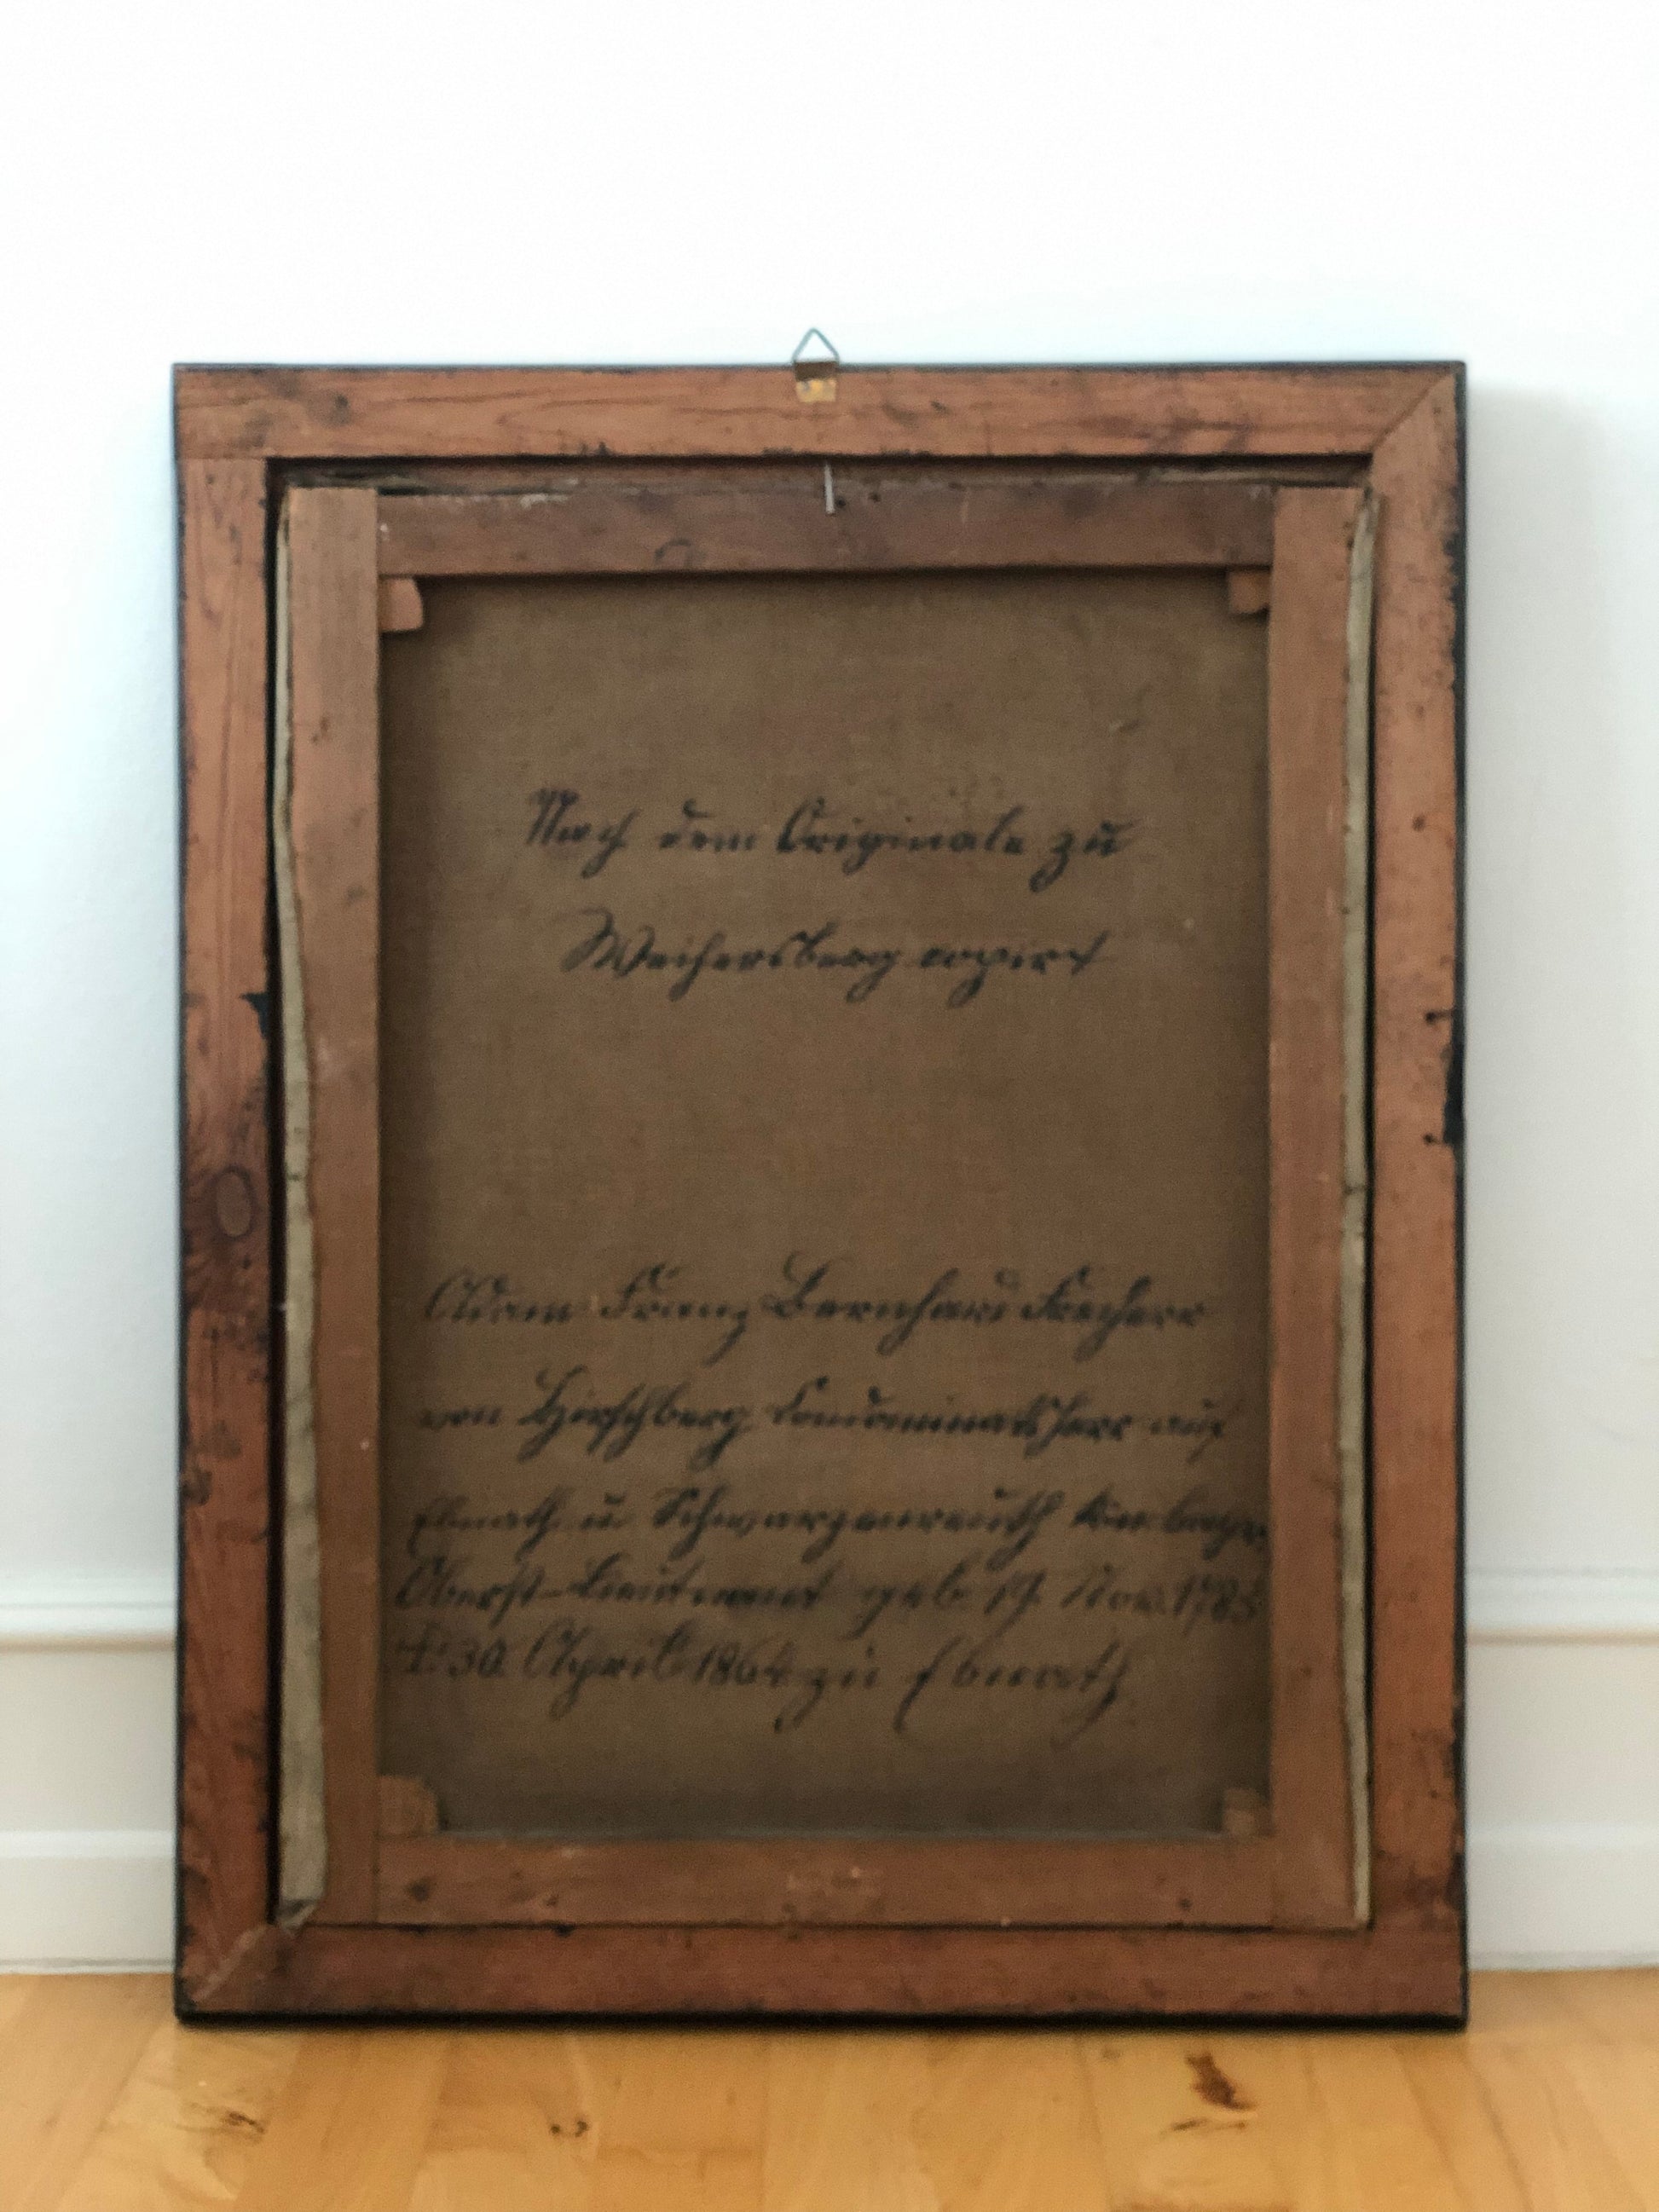 Nach dem Originale zu
Weihersberg copirt
Adam Franz Bernhard Freyherr
von Hirschberg Condominatsherr auf
Ebnath u Schwarzenreuth kön bayr.
Oberst-Lieutenant geb 19. Nov. 1785
† 30. April 1864 zu Ebnath